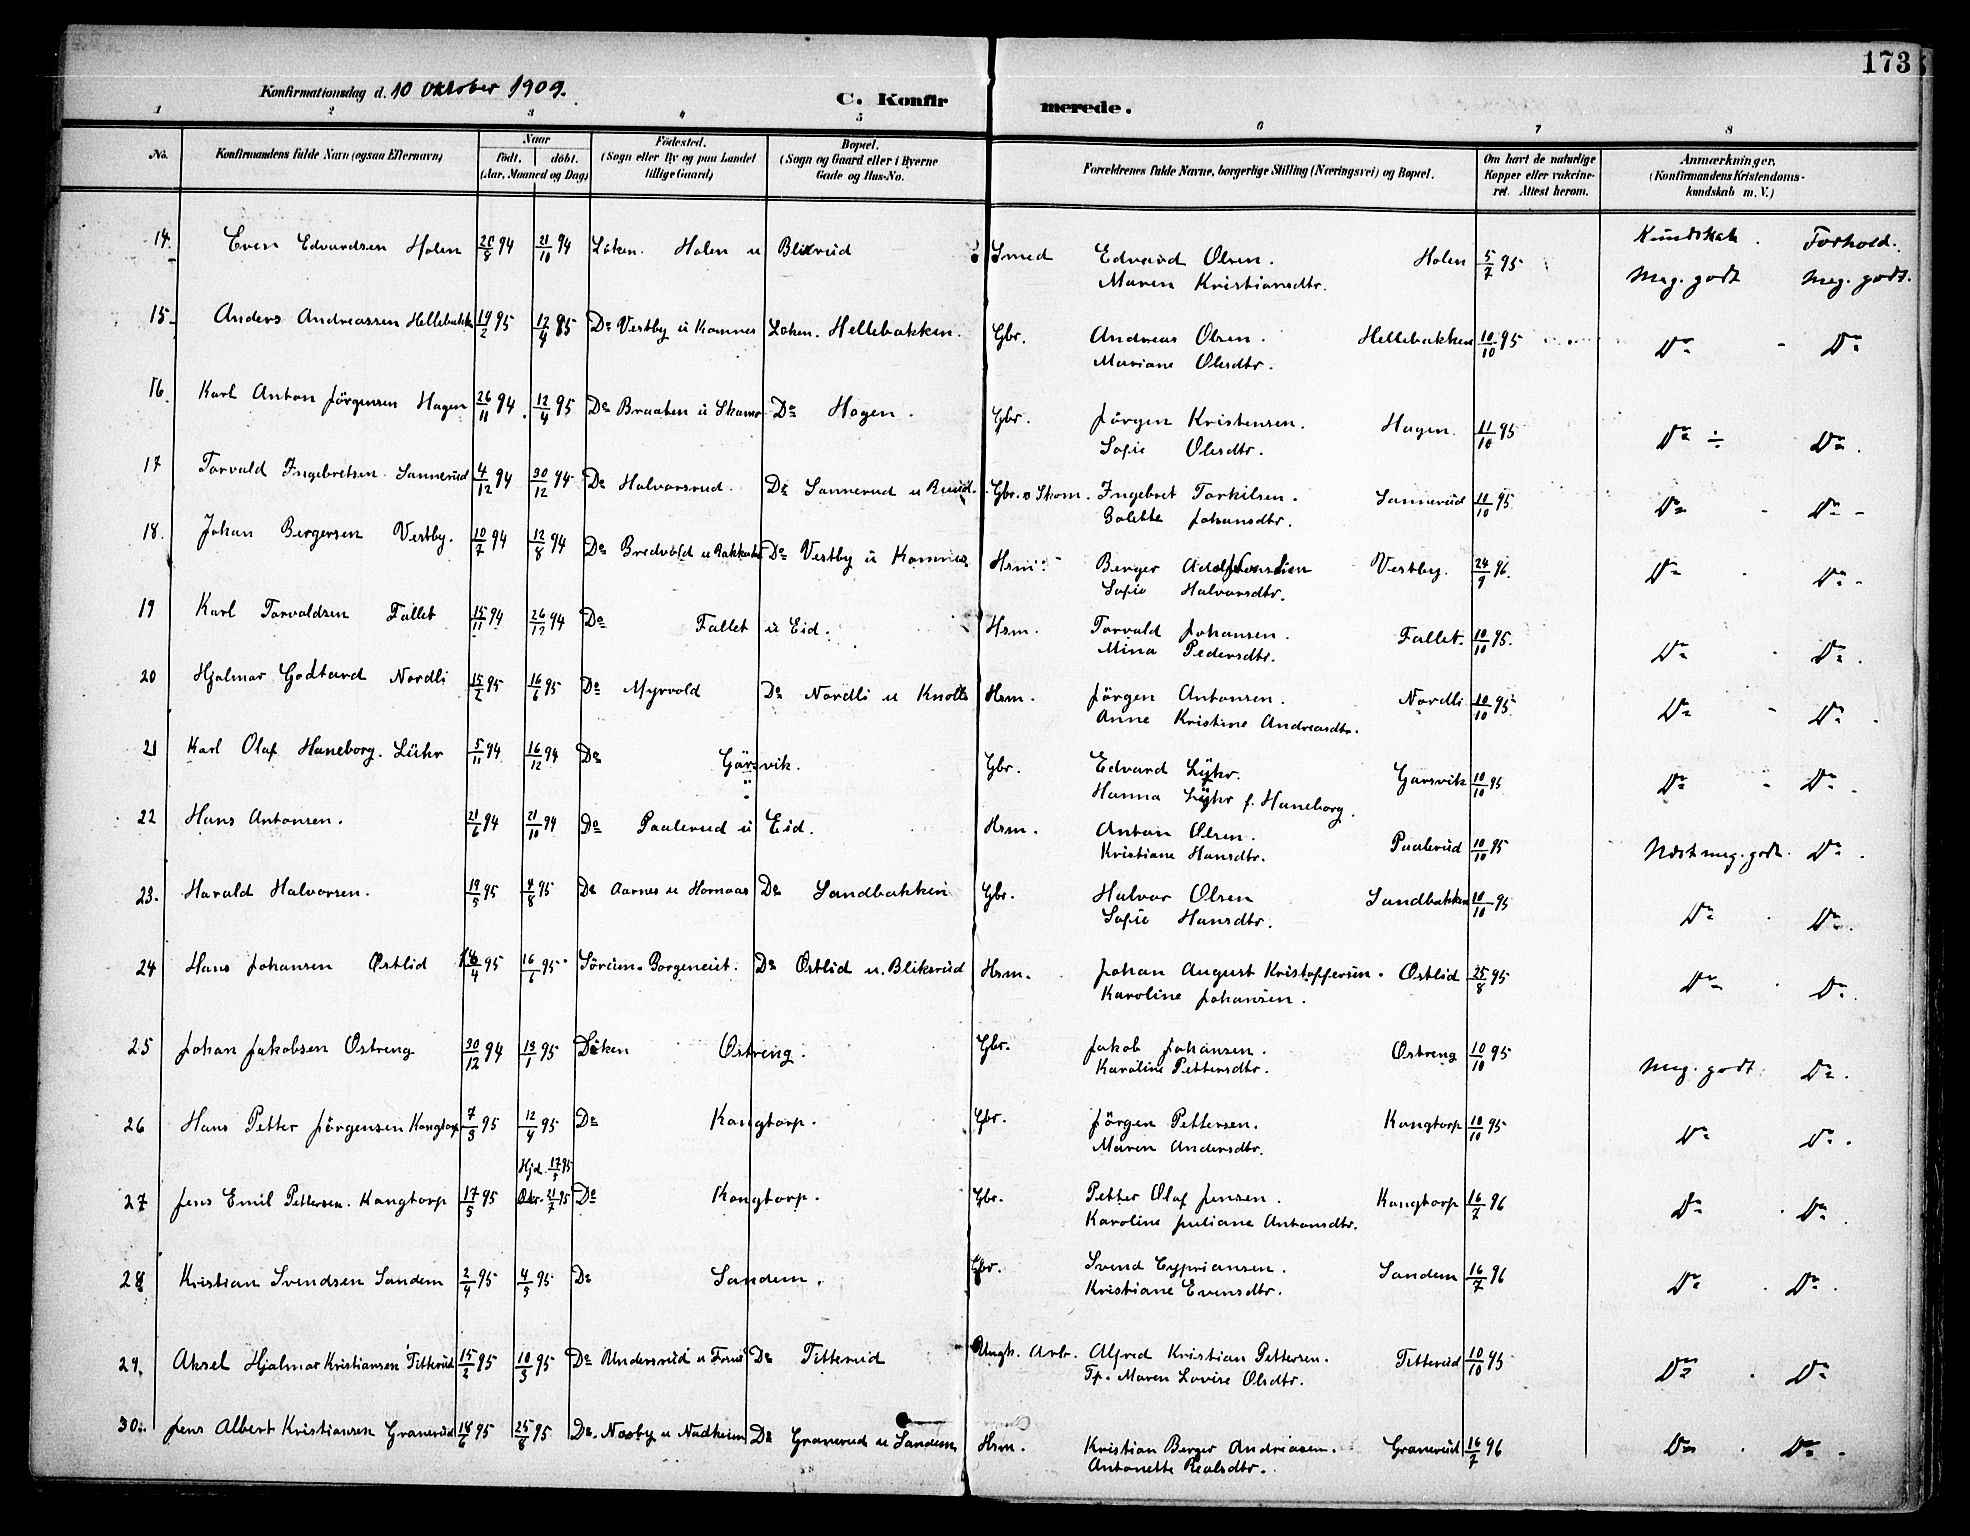 173
Konfirmationsdag d. 10 Oktober 1909.
C. Konfirmerede.
1 2 3 4 5 6 7 8
No. Konfirmandens fulde Navn (ogsaa Efternavn) Naar født. døbt. (Aar, Maaned og Dag) Fødested. (Sogn eller By og paa Landet tillige Gaard) Bopæl. (Sogn og Gaard eller i Byerne Gade og Hus-No. Forældrenes fulde Navne, borgerlige Stilling (Næringsvei) og Bopæl. Om havt de naturlige Kopper eller vakcineret. Attest herom. Anmærkninger, (Konfirmandens Kristendomskundskab m. V.)
Kundskab. Forhold.
14. Even Edvardsen Holen 94 21/10 94 Løken. Holen u Blixrud Smed Edvard Olsen. Holen 5/7 95 Meg. godt Meg. godt.
Maren Kristiansdtr.
15. Anders Andreassen Hellebakk 19/2 95 12/4 85 Do Vestby u Komnes Løken. Hellebakken. Gbr. Andreas Olsen. Hellebakken 10/10 95 Do - Do
Mariane Olesdtr.
16. Karl Anton Jörgensen Hagen 26/11 94. 12/4 95 Do Braaten u Do Hagen. Gbr. Jörgen Kristensen. Hagen. 11/10 95 Do ÷ Do.
Sofie Olesdtr.
17 Torvald Ingebretsen Sannerud 4/12 94 30/12 94 Do Halvorsrud. Do Sannerud u Ruud. Gbr. o Skom. Ingebret Torkilsen. Sannerud 10/10 95 Do - Do -
Bolette Johansdtr.
18. Johan Bergersen Vestby. 10/7 94 12/8 94 Do Do Vestby u Komnes Hrm. Berger Vestby. 24/9 96. Do Do -
Sofie Halvorsdtr.
19 Karl Torvaldsen Fallet 15/11 94 26/12 94 Do Fallet u Eid. Hrm. Torvald Johansen. Fallet. 10/10 95. Do Do.
Mina Pedersdtr.
20 Hjalmar Godtard Nordli 15/2 95 16/6 95 Do Myrvold Do Nordli u Knolls Hrm. Jörgen Antonsen. Nordli 10/10 95 Do - Do.
Anne Kristine Andreasdtr.
21 Karl Olaf Haneborg. Lühr 5/11 94 16/12 94 Do Gårsvik. Gbr. Edvard Lÿhr. Garsvik 10/10 95 Do - Do.
Hanna Lÿhr f. Haneborg.
22 Hans Antonsen. 21/6 94 21/10 94 Do Paalerud u Eid. Hrm. Anton Olsen. Paalerud 10/10 95 Næst meg. godt. Do.
Kristiane Hansdtr.
23. Harald Halvorsen. 19/5 95 4/8 95 Do Aarnes u Hornaas Do Sandbakken Gbr. Halvor Olsen Sandbakken 10/10 95 Do Do.
Sofie Hansdtr.
24 Hans Johansen Østlid 95 16/6 95 Sørum. Borgeneiet. Do Østlid u. Bliksrud Hrm. Johan August Kristoffersen. Østlid 25/8 95 Do. Do.
Karoline Johansen.
25 Johan Jakobsen Østreng 30/12 94 13/1 95 Løken Østreng. Gbr. Jakob Johansen. Østreng 10/10 95 Meg. godt Do.
Karoline Pettersdtr.
26 Hans Petter Jörgensen Kongtorp 7/3 95 12/4 95 Do Kongtorp. Gbr. Jörgen Pettersen. Kongtorp 10/10 95 Do Do.
Maren Andersdtr.
Hjd. 17/5 95
27 Jens Emil Pettersen. Kongtorp 17/5 95 21/7 95 Do Kongtorp. Gbr. Petter Olaf Jensen. Kongtorp 16/7 96 Do. Do.
Karoline Juliane Antonsdtr.
28 Kristian Svendsen Sandem 2/4 95 4/5 95 Do Sandem. Gbr. Svend Cypriansen. Sandem 16/7 96 Do. Do.
Kristiane Evensdtr.
29. Aksel Hjalmar Kristiansen Titterud 15/2 95 10/3 95 Do Do Titterud Arb. Alfred Kristian Pettersen. Titterud 10/10 95 Do. Do
Tp. Maren Lovise Olsdtr.
30. Jens Albert Kristiansen Granerud 18/6 95 25/8 95 Do. Nosby u Nadheim Do Granerud u Sandem Hrm. Kristian Berger Andreasen. Granerud 16/7 96 Do. Do.
Antonette